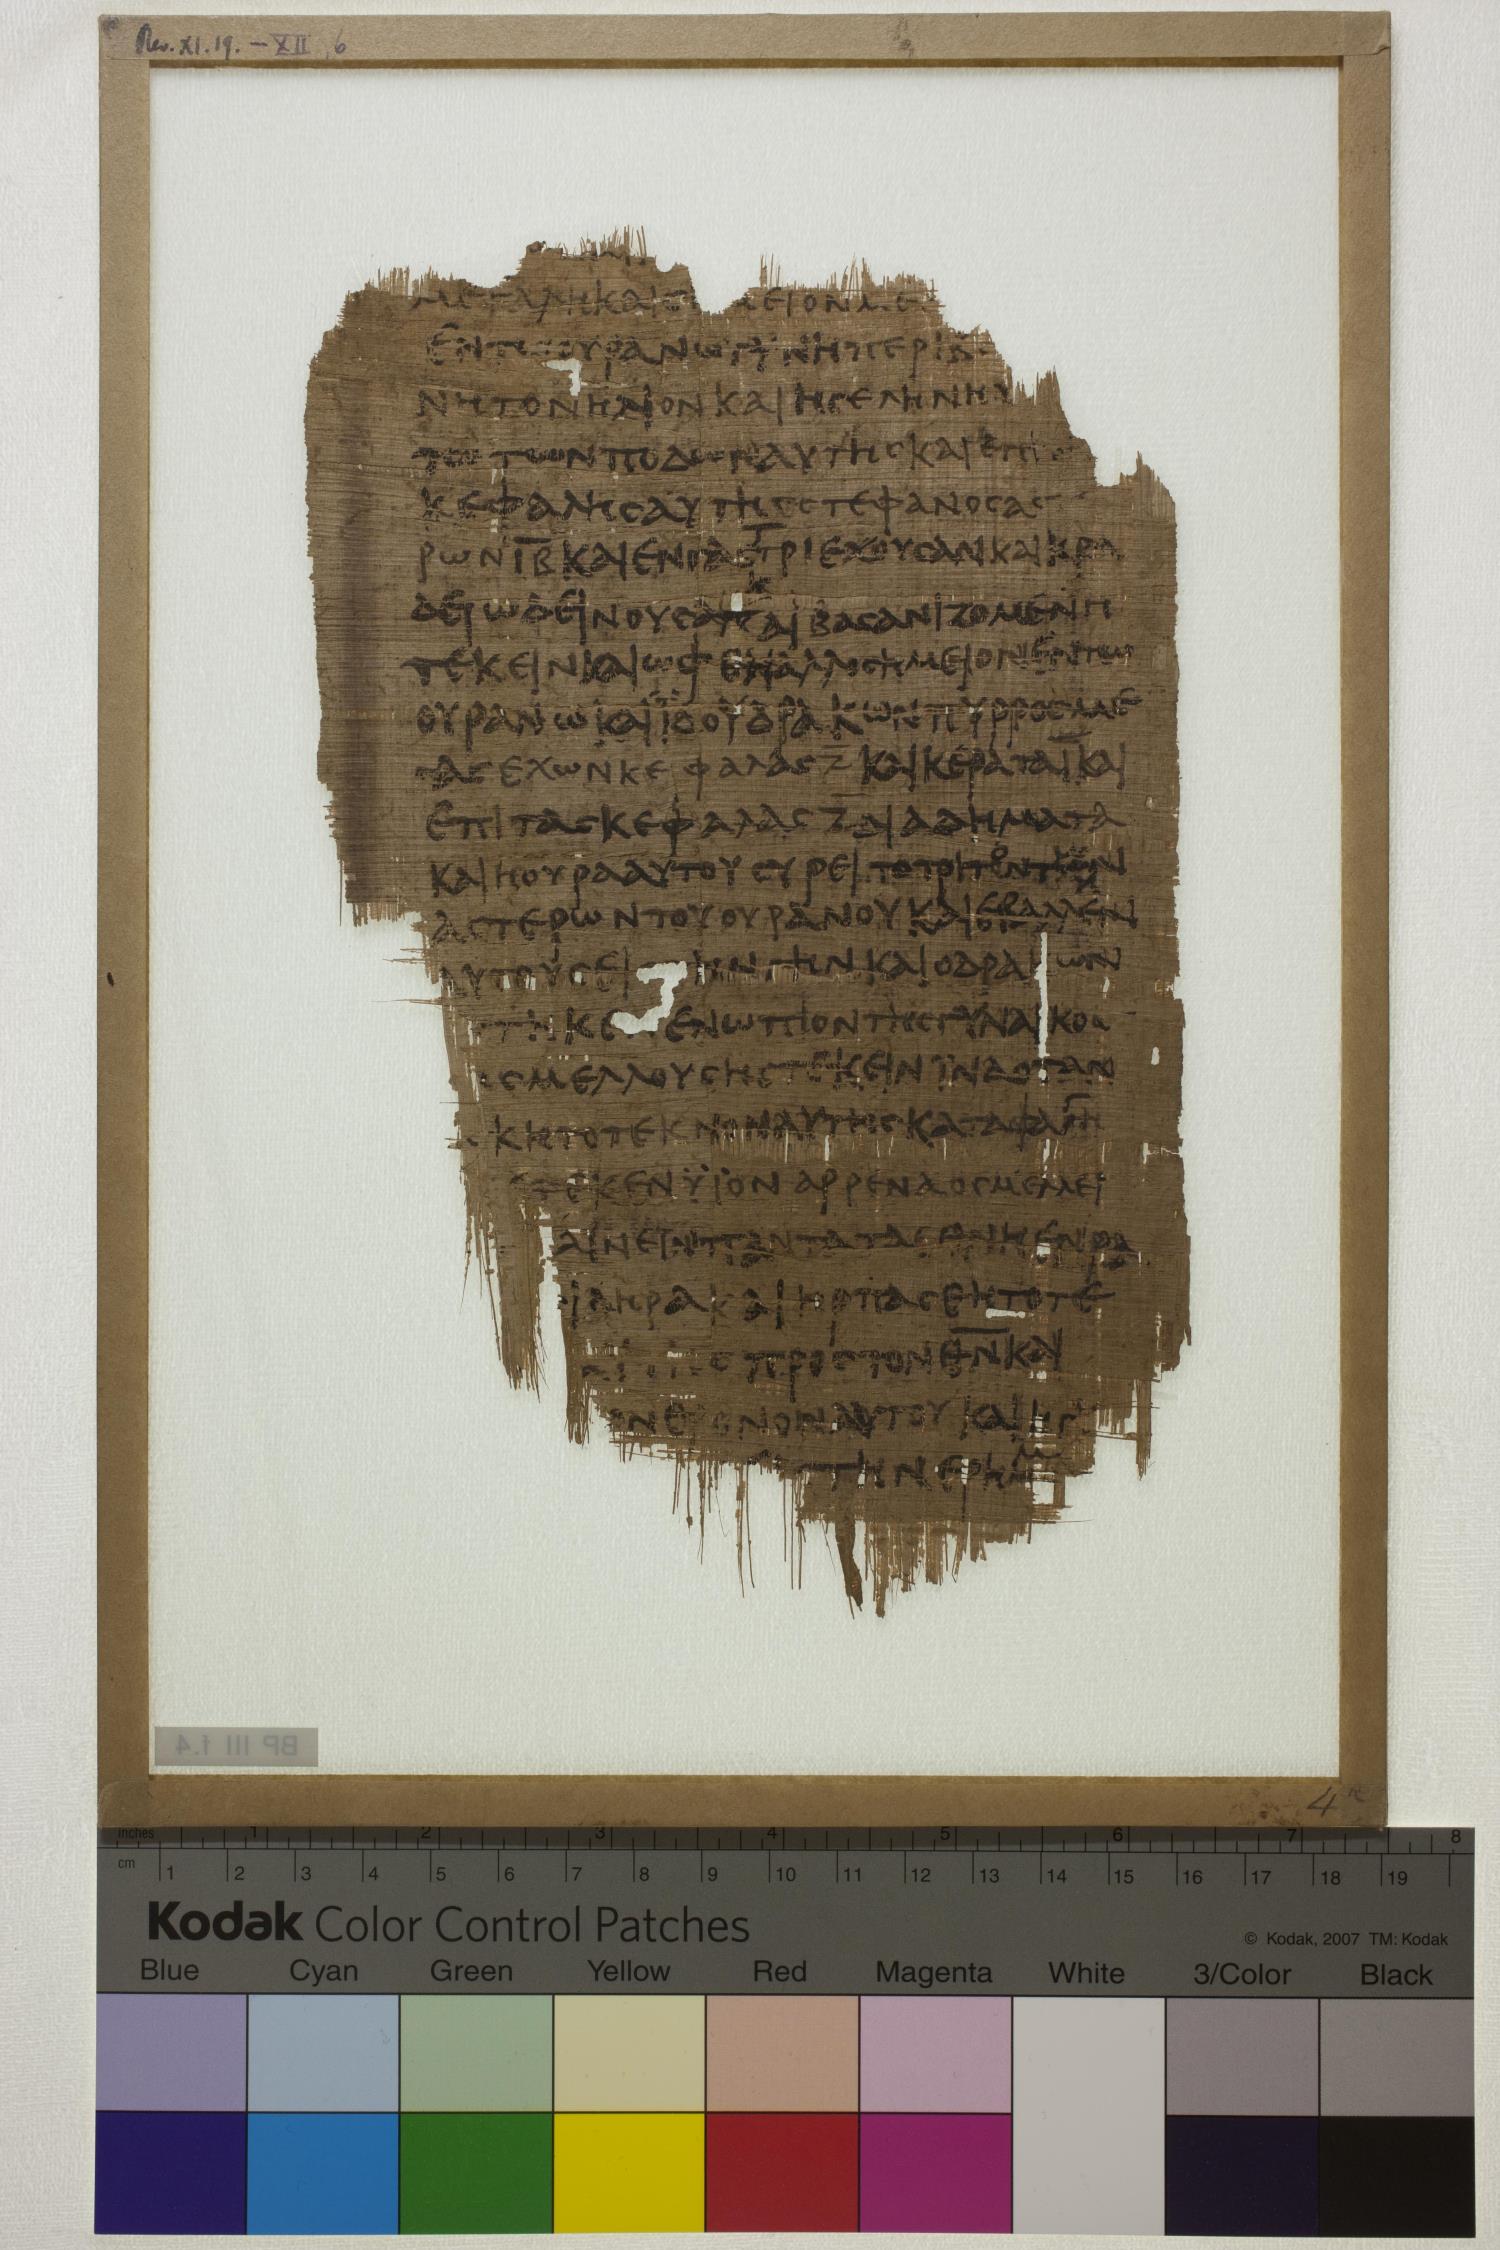 Rev. XI. 19. – XII, 6
ΜΕΓΑΛΗ ΚΑΙ ΣΗΜΕΙΟΝ ΜΕ
ΕΝ ΤΩ ΟΥΡΑΝΩ ΓΥΝΗ ΠΕΡΙΒ
ΝΗ ΤΟΝ ΗΛΙΟΝ ΚΑΙ Η ΣΕΛΗΝΗ Υ
ΤΩ ΤΩΝ ΠΟΔΩΝ ΑΥΤΗΣ ΚΑΙ ΕΠΙ
ΚΕΦΑΛΗΣ ΑΥΤΗΣ ΣΤΕΦΑΝΟΣ ΑΣ
ΡΩΝ ΙΒ ΚΑΙ ΕΝ ΓΑΣΤΡΙ ΕΧΟΥΣΑΝ ΚΑΙ ΚΡΑ
ΔΕΙ ΩΔΕΙΝΟΥΣΑ ΚΑΙ ΒΑΣΑΝΙΖΟΜΕΝΗ
ΤΕΚΕΙΝ ΚΑΙ ΩΦΘΗ ΑΛΛΟ ΣΗΜΕΙΟΝ ΕΝ ΤΩ
ΟΥΡΑΝΩ ΚΑΙ ΙΔΟΥ ΔΡΑΚΩΝ ΠΥΡΡΟΣ ΜΕ
ΓΑΣ ΕΧΩΝ ΚΕΦΑΛΑΣ Ζ ΚΑΙ ΚΕΡΑΤΑ Ι ΚΑΙ
ΕΠΙ ΤΑΣ ΚΕΦΑΛΑΣ Ζ ΔΙΑΔΗΜΑΤΑ
ΚΑΙ Η ΟΥΡΑ ΑΥΤΟΥ ΣΥΡΕΙ ΤΟ ΤΡΙΤΟΝ ΤΩΝ
ΑΣΤΕΡΩΝ ΤΟΥ ΟΥΡΑΝΟΥ ΚΑΙ ΕΒΑΛΕΝ
ΑΥΤΟΥΣ ΕΙ ΤΗΝ ΓΗΝ ΚΑΙ Ο ΔΡΑΚΩΝ
ΣΤΗΚΕ ΕΝΩΠΙΟΝ ΤΗΣ ΓΥΝΑΙΚΟΣ
ΗΣ ΜΕΛΛΟΥΣΗΣ ΤΕΚΕΙΝ ΙΝΑ ΟΤΑΝ
ΚΗ ΤΟ ΤΕΚΝΟΝ ΑΥΤΗΣ ΚΑΤΑΦΑΓΗ
ΕΤΕΚΕΝ ΥΙΟΝ ΑΡΡΕΝΑ ΟΣ ΜΕΛΛΕΙ
ΑΙΝΕΙΝ ΠΑΝΤΑ ΤΑ ΕΘΝΗ ΕΝ ΡΑ
ΙΔΗΡΑ ΚΑΙ ΗΡΠΑΣΘΗ ΤΟ ΤΕ
ΑΥΤΗΣ ΠΡΟΣ ΤΟΝ ΘΝ ΚΑΙ
ΟΝ ΘΡΟΝΟΝ ΑΥΤΟΥ ΚΑΙ Η Γ
ΤΗΝ ΕΡΗΜ
BP III f.4
4
Inches 1 2 3 4 5 6 7 8
cm 1 2 3 4 5 6 7 8 9 10 11 12 13 14 15 16 17 18 19
Kodak Color Control Patches
© Kodak, 2007 TM: Kodak
Blue Cyan Green Yellow Red Magenta White 3/Color Black